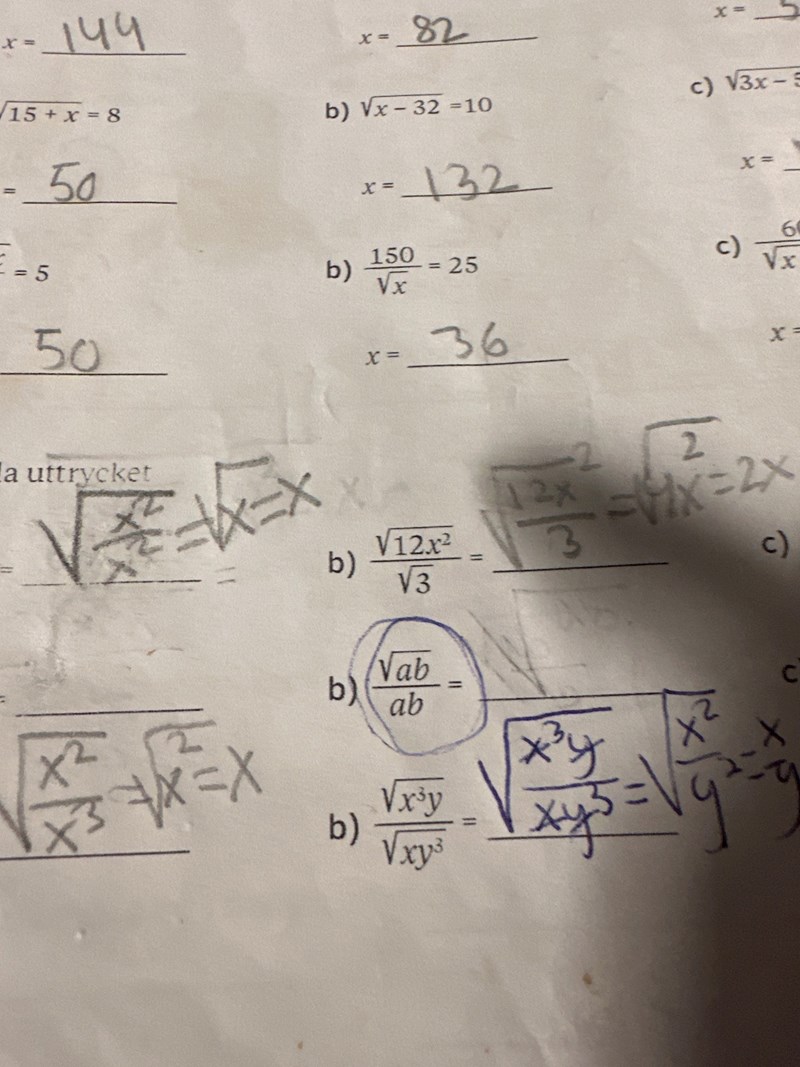 x = 144
x = 82
x =
√15 + x = 8
b) √x − 32 =10
c) √3x −
= 50
x = 132
x =
= 5
b) 150/√x = 25
c) 6 /√x
50
x = 36
x =
la uttrycket
= √x²/x² = √x = x
=
b) √12x²/√3 = √12x²/3 = √4x² = 2x
c)
=
b) √ab/ab =
c
√x²/x³ = √x² = x
b) √x³y/√xy³ = √x³y/xy³ = √x²/y² = x/y